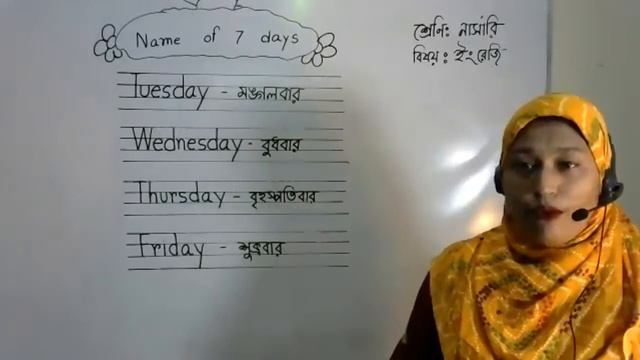 Name of 7 days
শ্রেনি: নার্সারি
বিষয়: ইংরেজি
Tuesday - মঙ্গলবার
Wednesday - বুধবার
Thursday - বৃহস্পতিবার
Friday - শুক্রবার